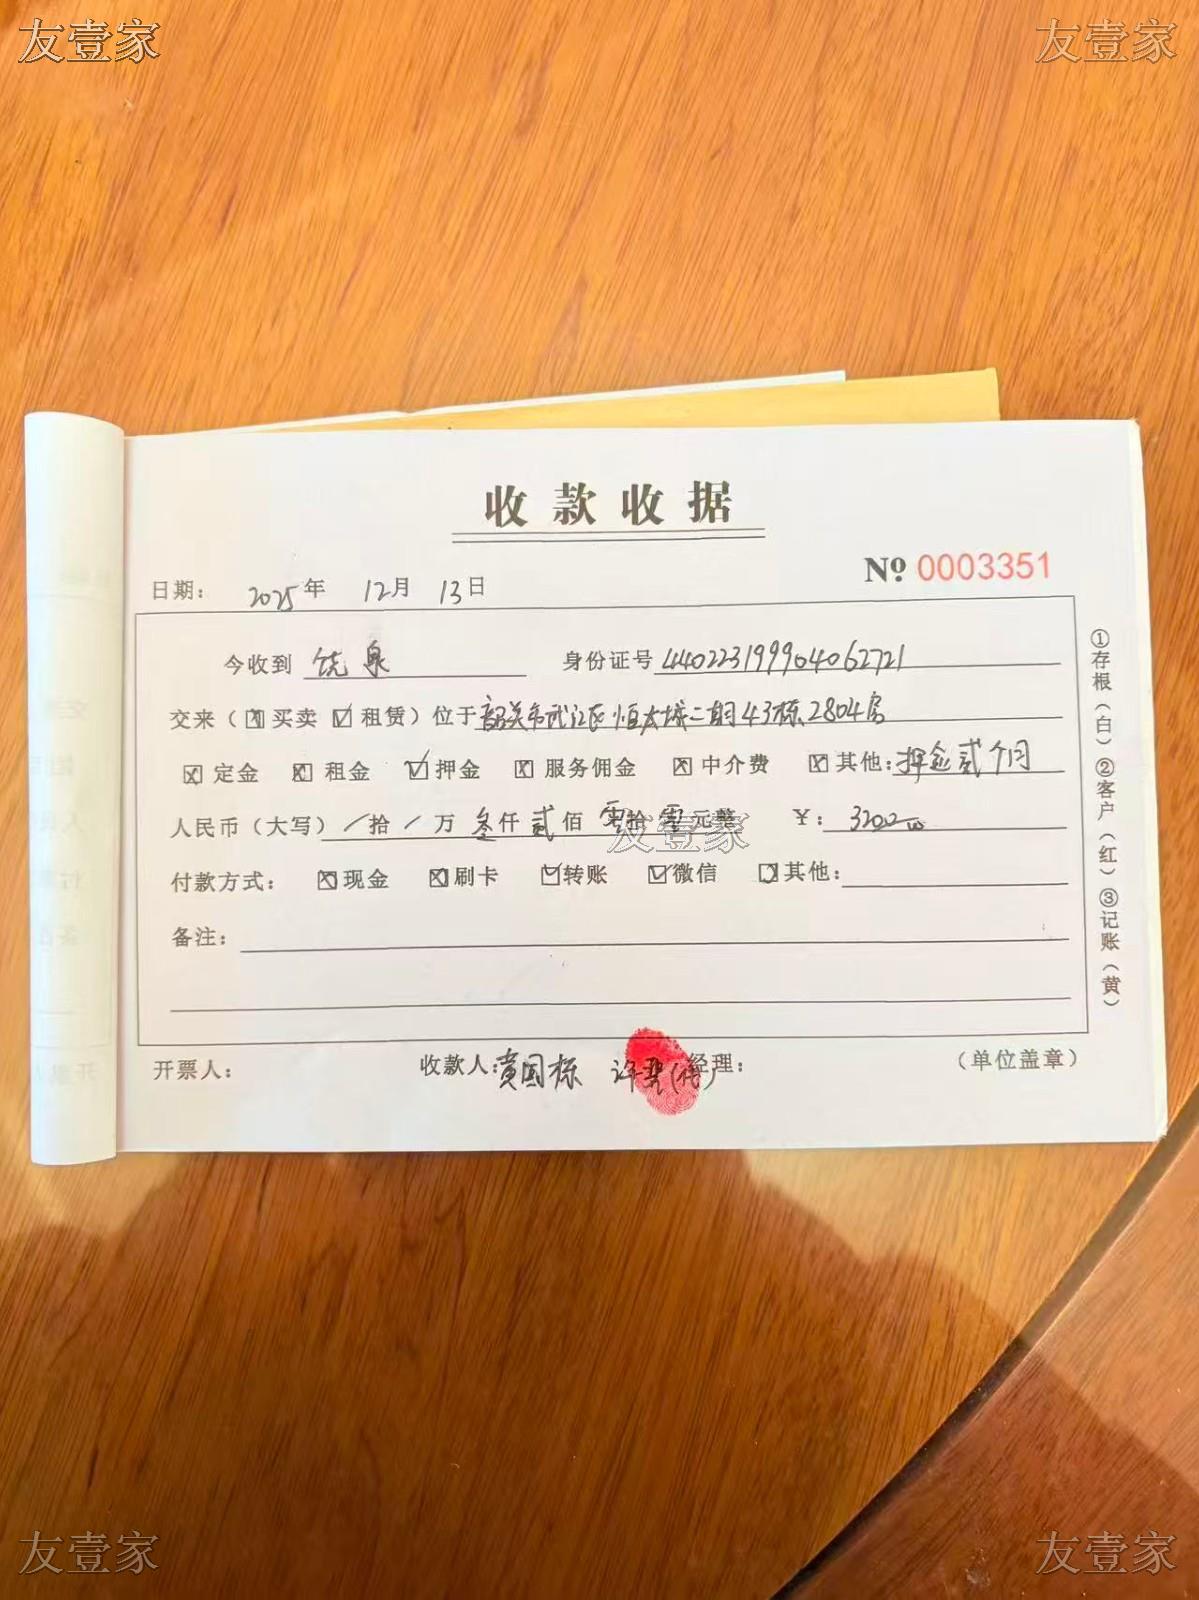 友壹家 友壹家
收款收据
№ 0003351
日期： 2025年 12月 13日
今收到 饶泉 身份证号 440223199904062721
交来（☒买卖 ☑租赁）位于 韶关市武江区恒大城二期43栋2804房
☒定金 ☒租金 ☑押金 ☒服务佣金 ☒中介费 ☑其他：押金贰个月
人民币（大写）/拾/万叁仟贰佰零拾零元整 ¥：3200
友壹家
付款方式： ☒现金 ☒刷卡 ☑转账 ☑微信 ☑其他：
备注：
开票人： 收款人：黄国栋 许(代) 经理： （单位盖章）
①存根（白）②客户（红）③记账（黄）
友壹家 友壹家